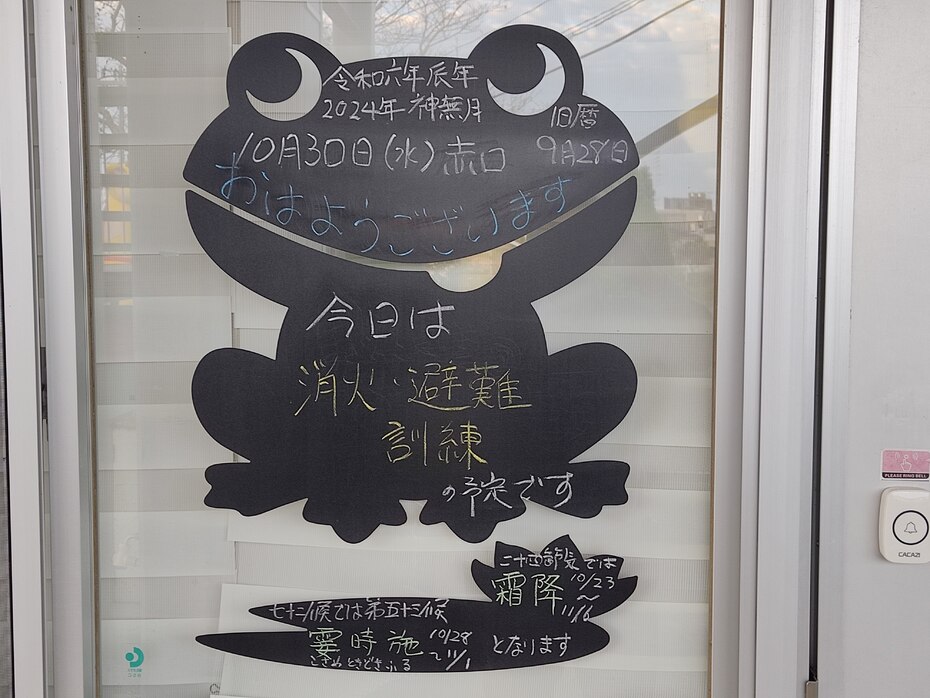 令和六年辰年
2024年 神無月
10月30日(水)赤口
旧暦
9月28日
おはようございます
今日は
消火・避難
訓練
の予定です
二十四節気では
霜降 10/23
～
11/6
七十二候では第五十三候
霎時施 10/28
～11/1
こさめときどきふる
となります
PLEASE RING BELL
CACAZI